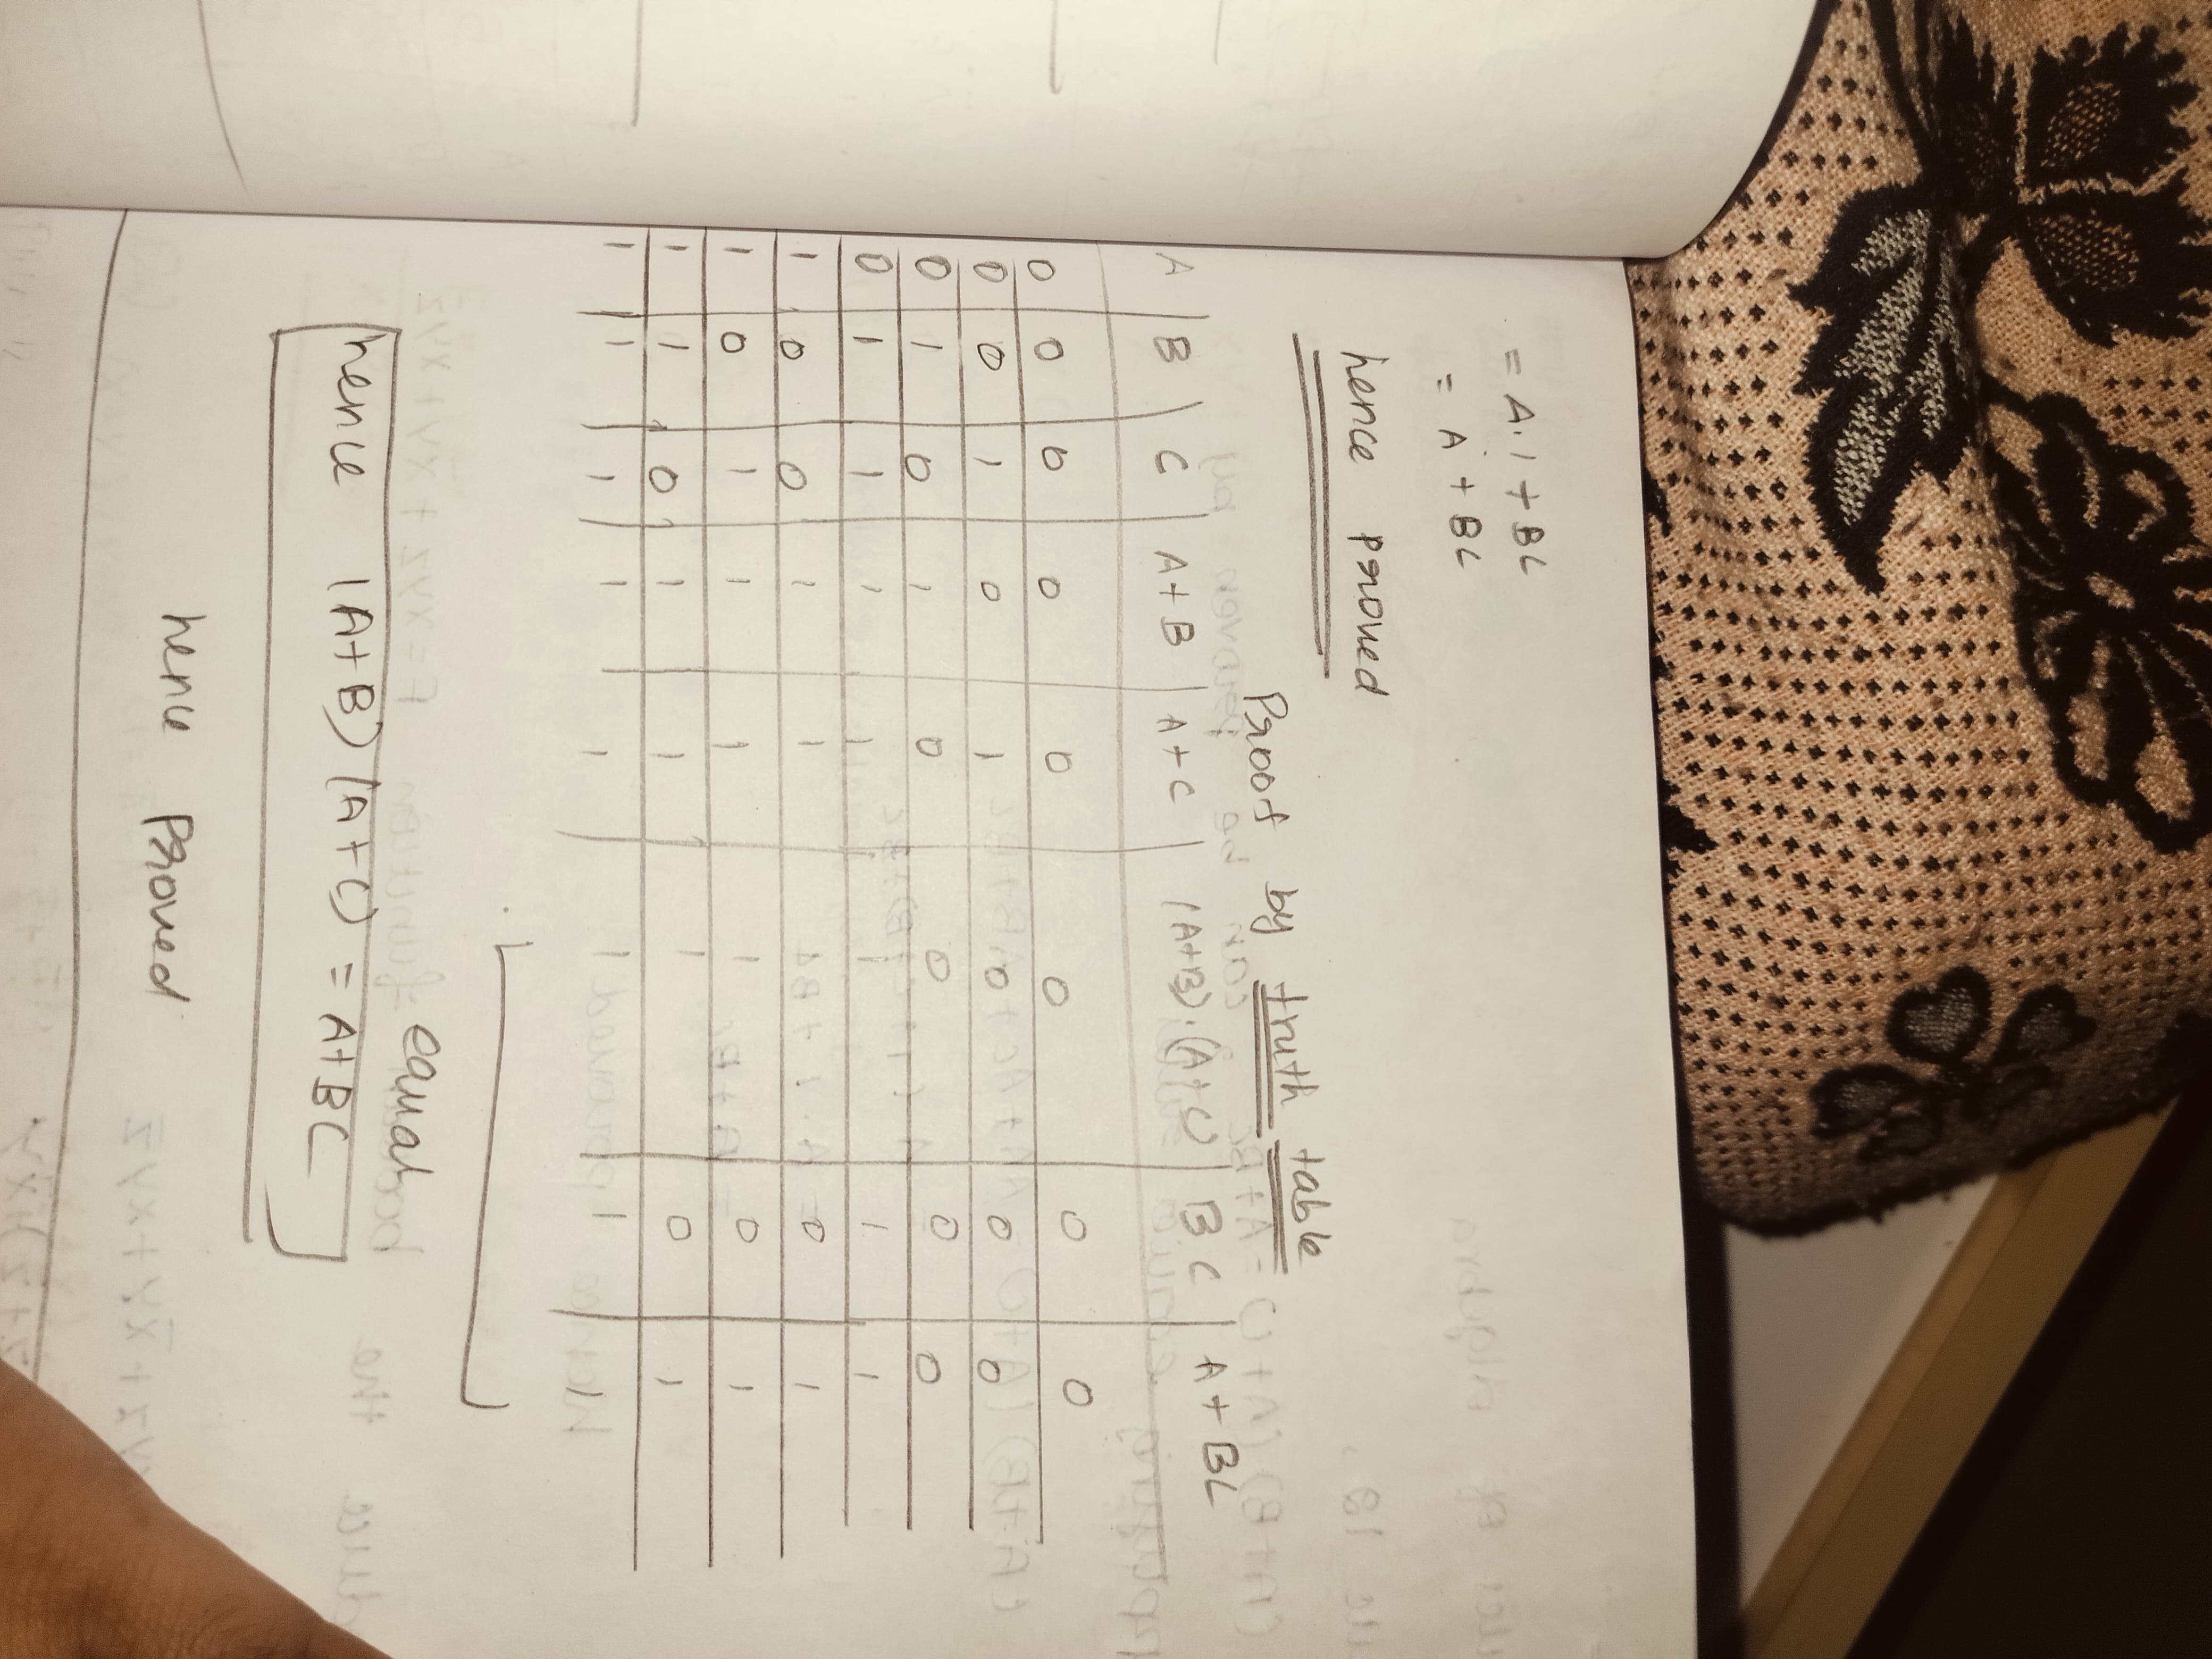 = A.1 + BC
= A + BC
hence proved
Proof by truth table
A B C A+B A+C (A+B).(A+C) BC A+BC
0 0 0 0 0 0 0 0
0 0 1 0 1 0 0 0
0 1 0 1 0 0 0 0
0 1 1 1 1 1 1 1
1 0 0 1 1 1 0 1
1 0 1 1 1 1 0 1
1 1 0 1 1 1 0 1
1 1 1 1 1 1 1 1
equal
hence (A+B)(A+C) = A+BC
hence Proved